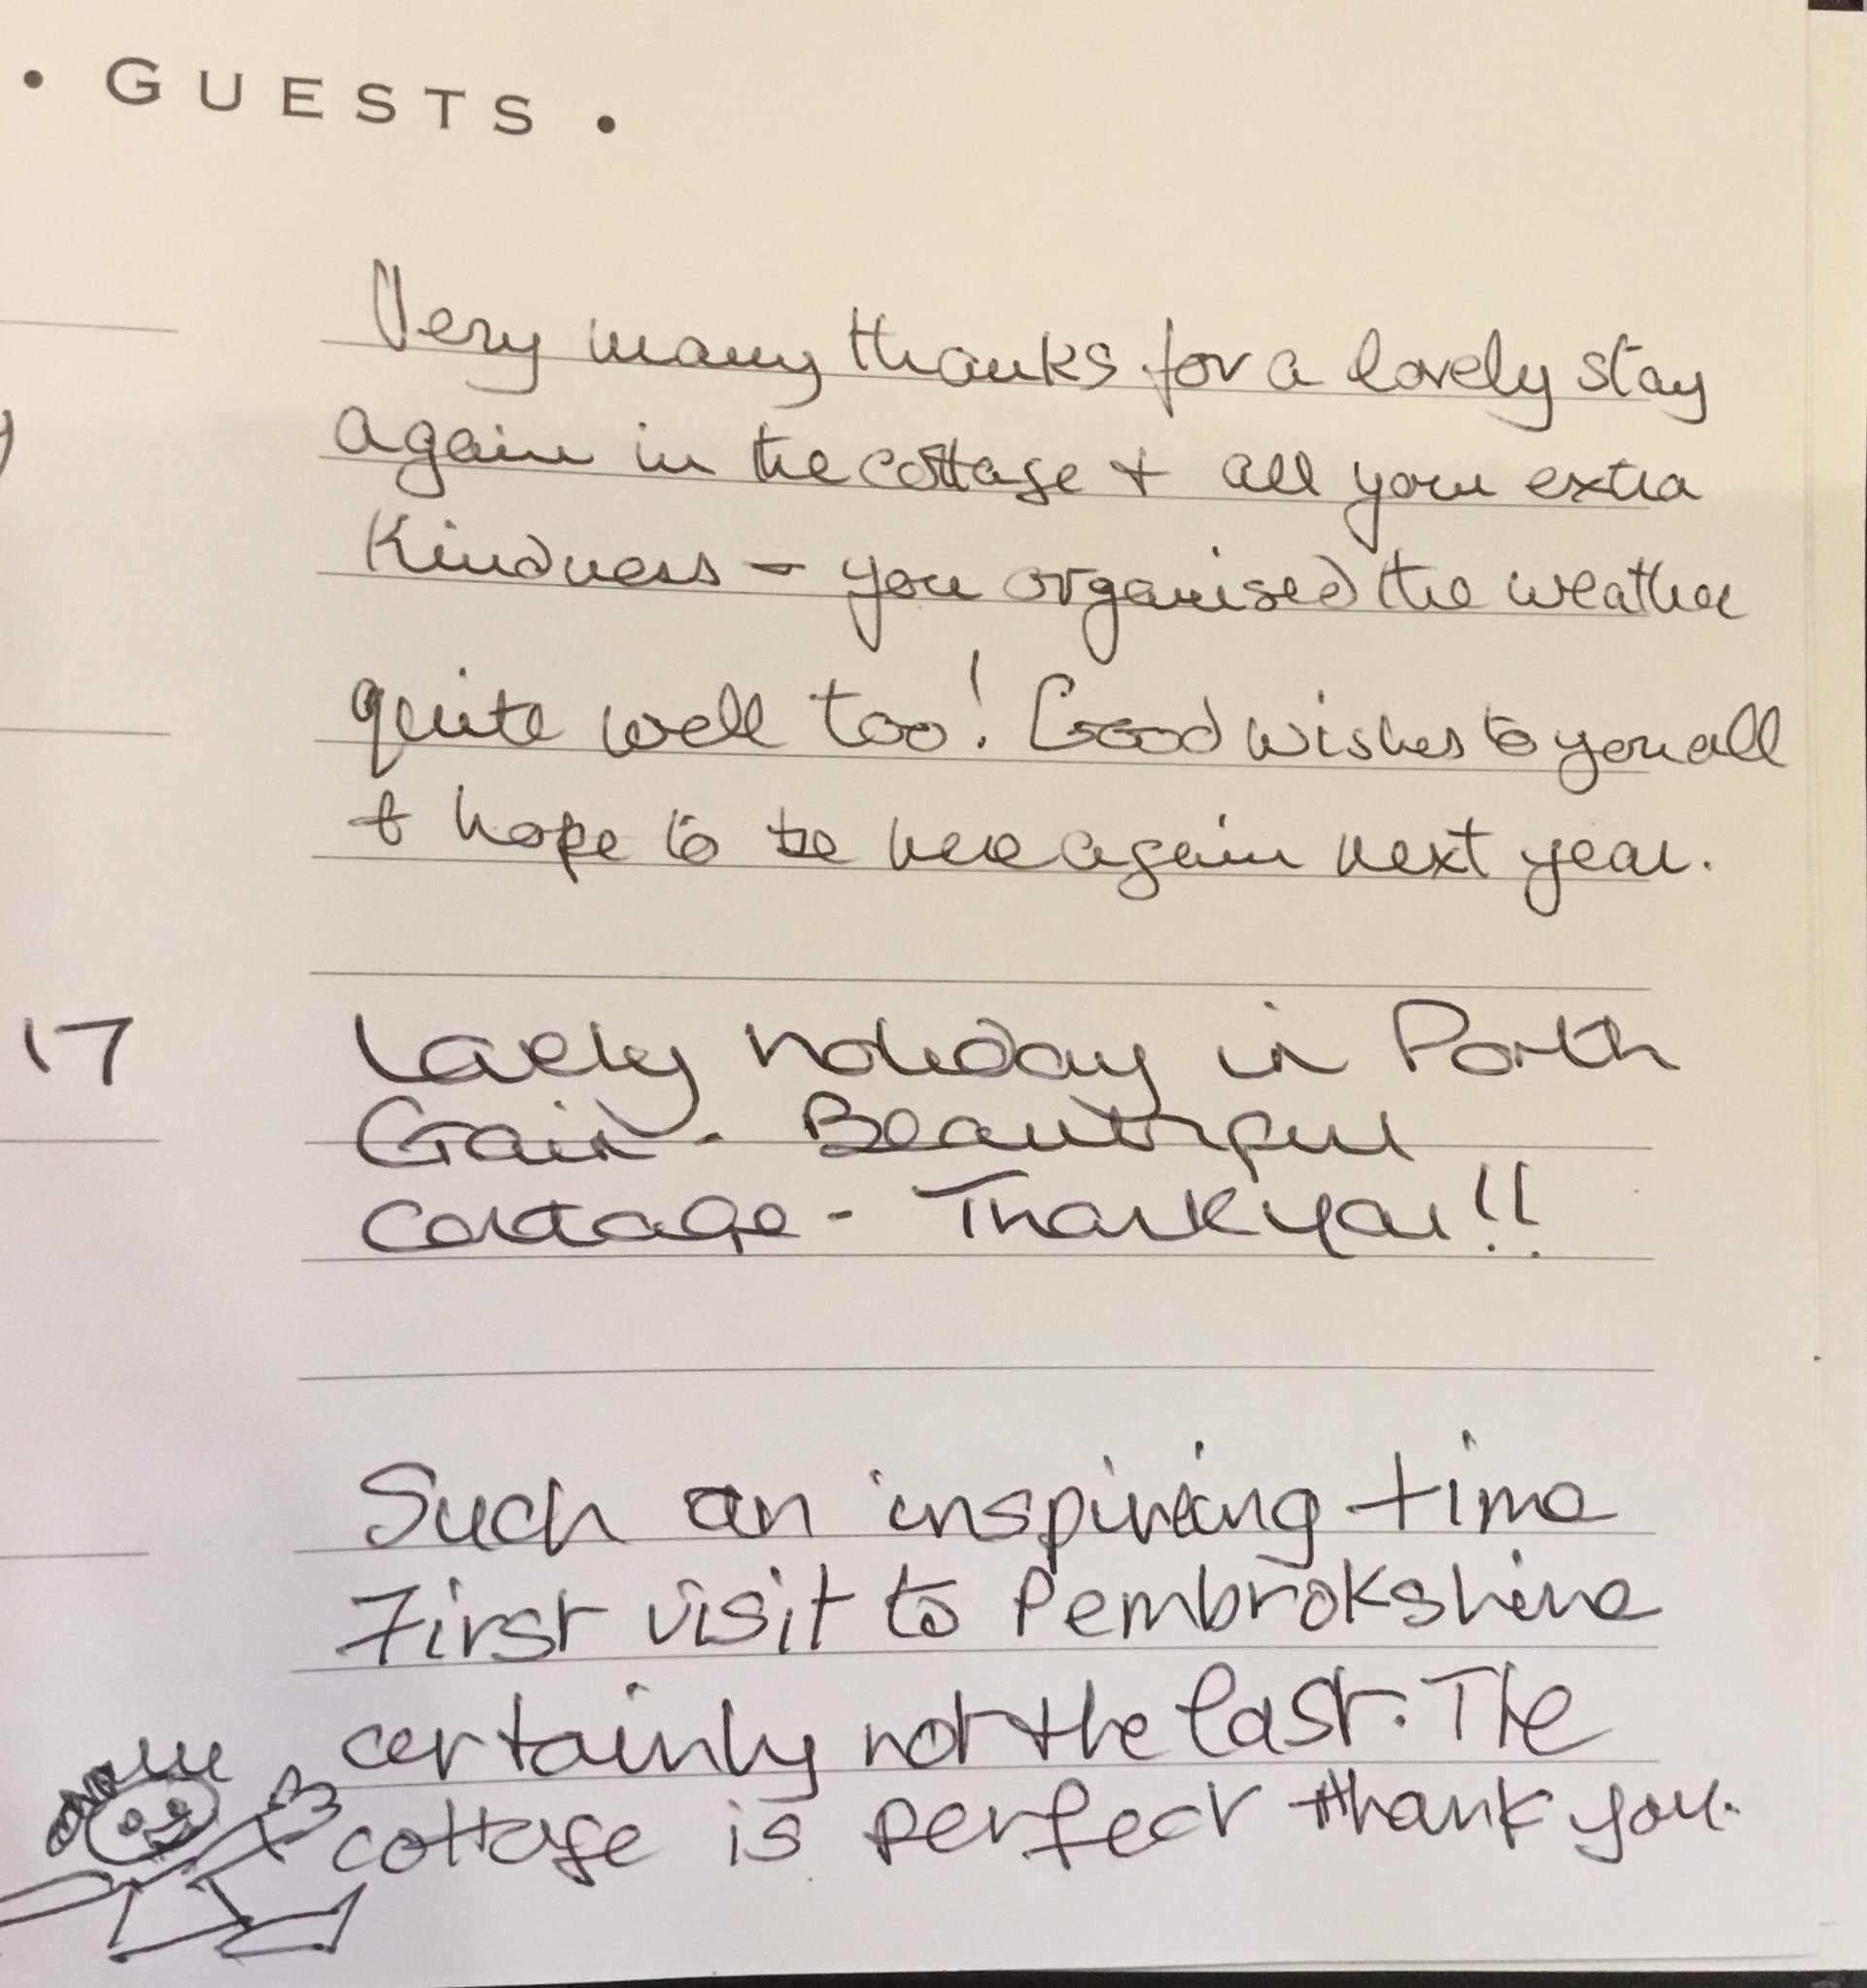 • GUESTS •
Very many thanks for a lovely stay
again in the cottage + all your extra
kindness - you organised the weather
quite well too! Good wishes to you all
+ hope to be here again next year.
17
Lovely holiday in Porth
Gain. Beautiful
cottage - Thank you!!
Such an inspiring time
First visit to Pembrokshire
certainly not the last. The
cottage is perfect thank you.